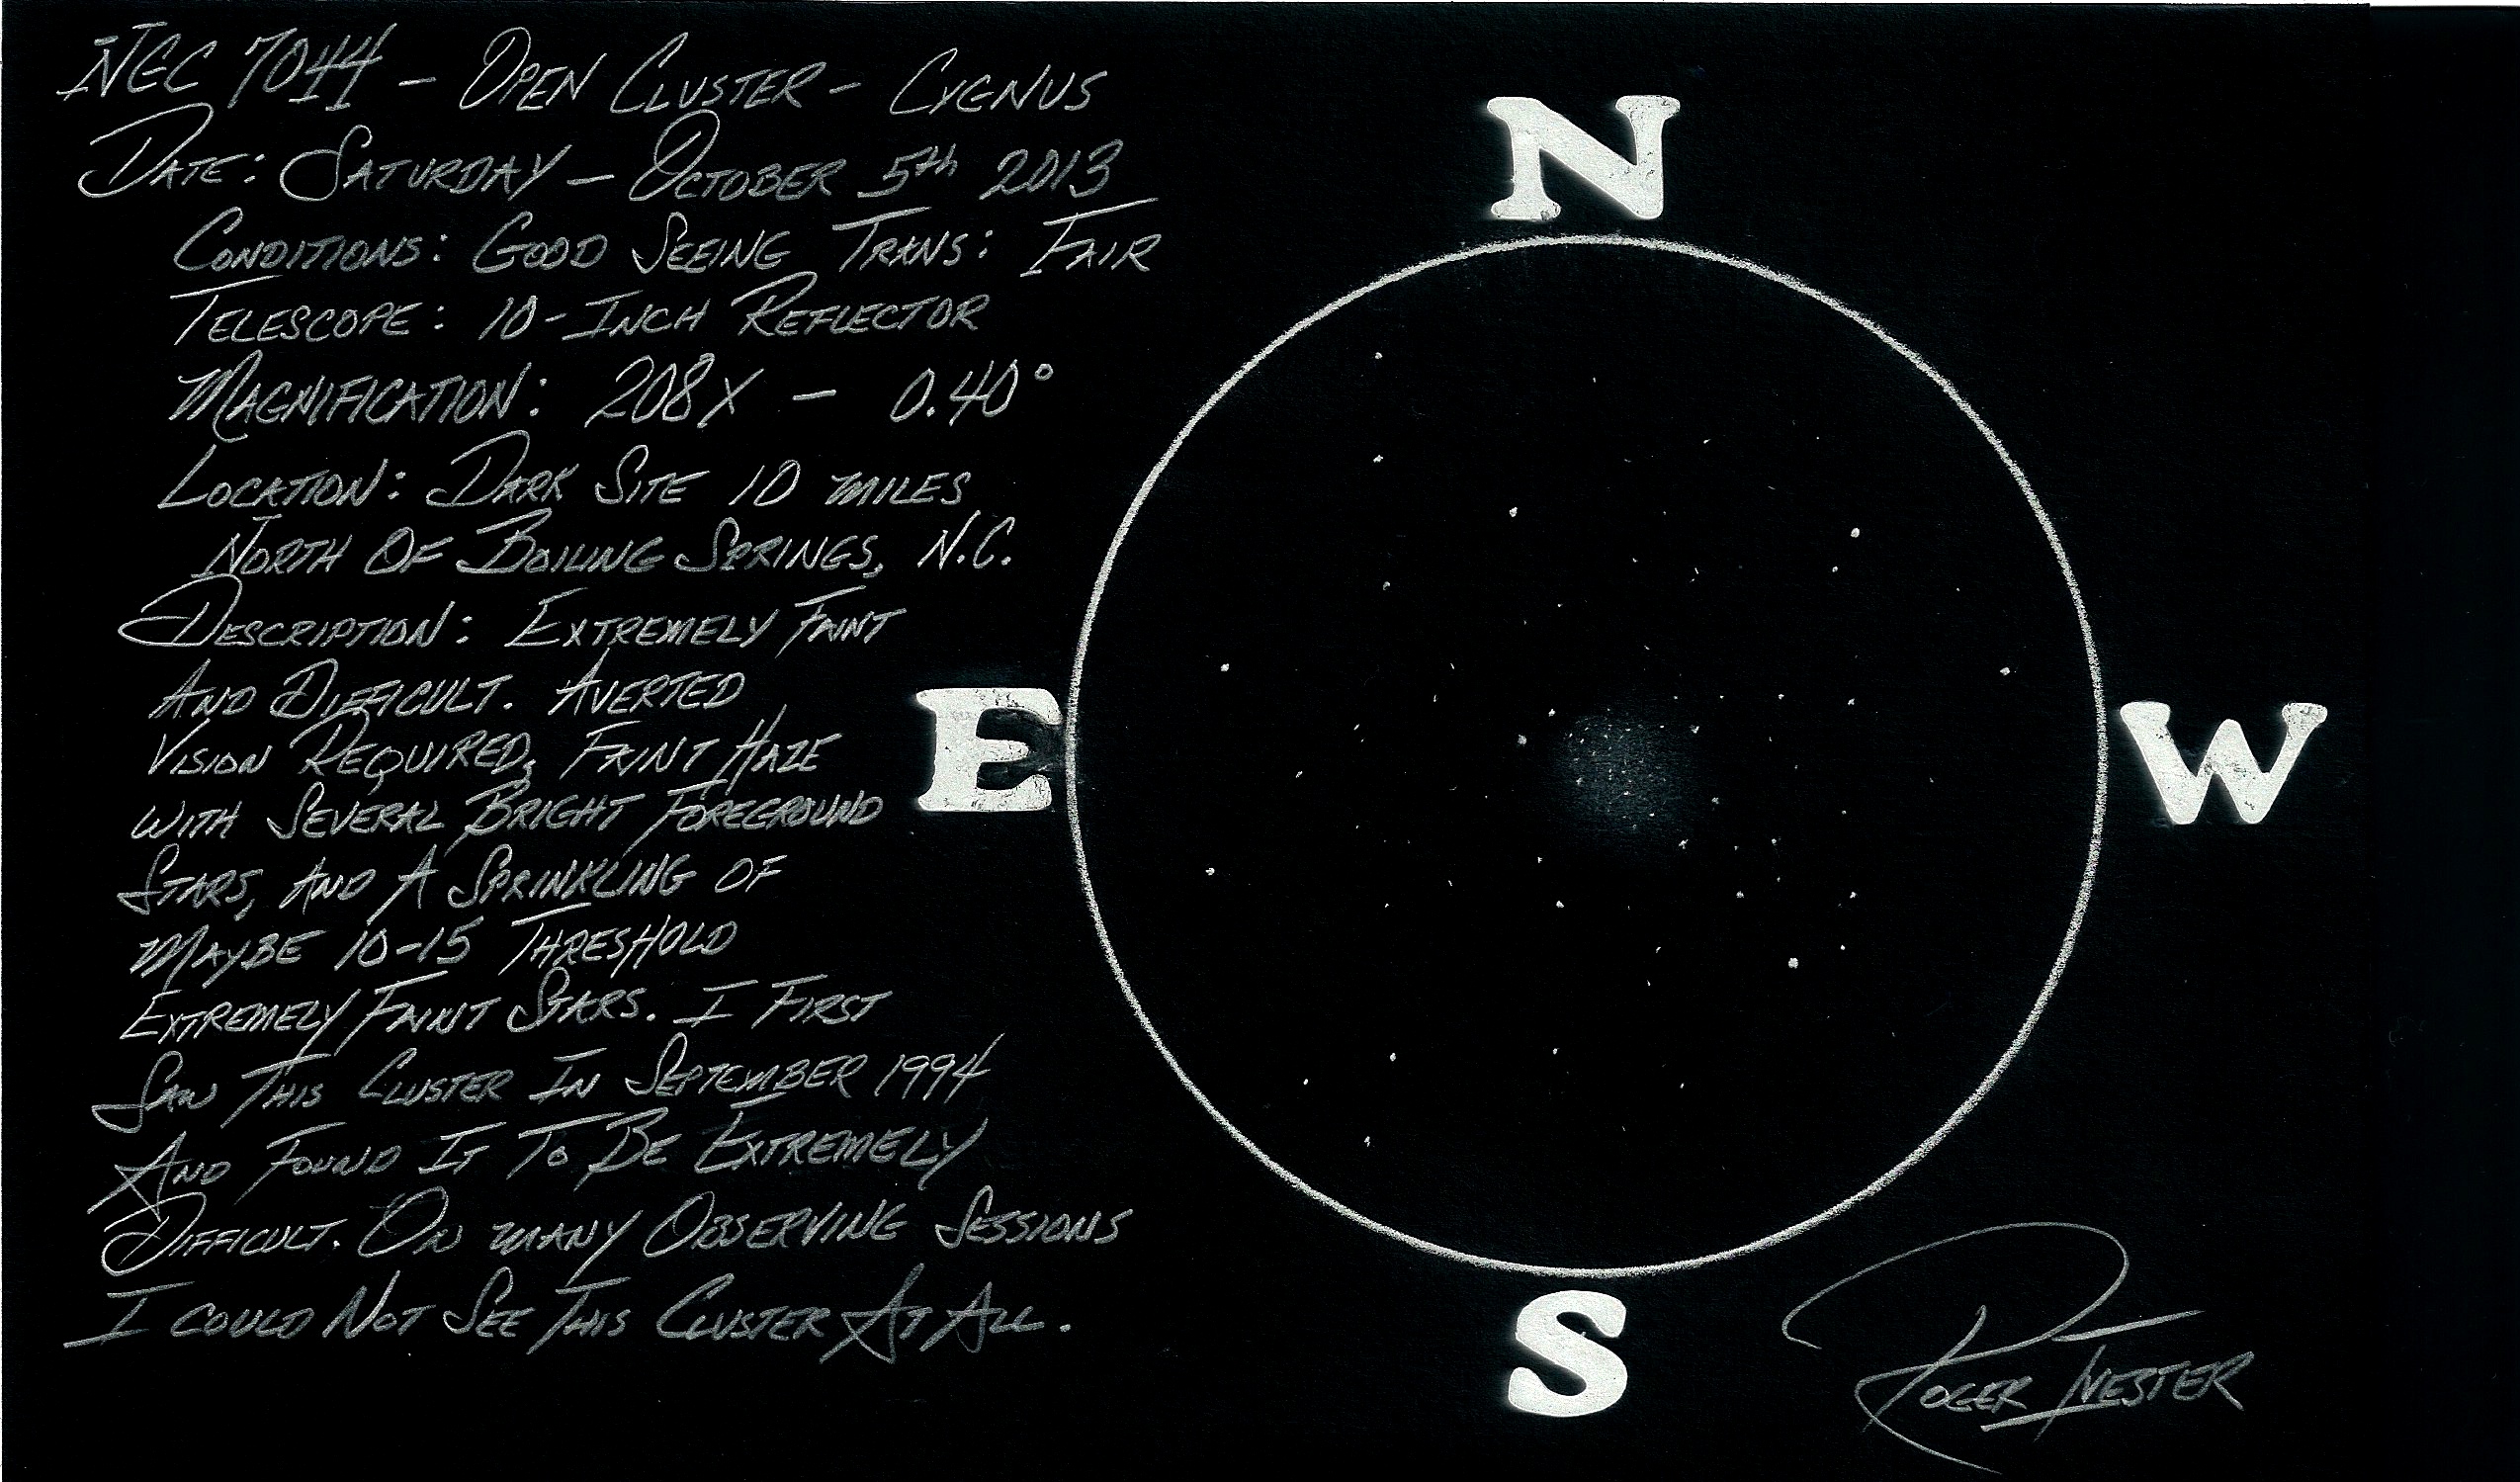 NGC 7044 - OPEN CLUSTER - CYGNUS
DATE: SATURDAY - OCTOBER 5th 2013
CONDITIONS: GOOD SEEING TRANS: FAIR
TELESCOPE: 10-INCH REFLECTOR
MAGNIFICATION: 208X - 0.40°
LOCATION: DARK SITE 10 MILES
NORTH OF BOILING SPRINGS, N.C.
DESCRIPTION: EXTREMELY FAINT
AND DIFFICULT. AVERTED
VISION REQUIRED, FAINT HAZE
WITH SEVERAL BRIGHT FOREGROUND
STARS, AND A SPRINKLING OF
MAYBE 10-15 THRESHOLD
EXTREMELY FAINT STARS. I FIRST
SAW THIS CLUSTER IN SEPTEMBER 1994
AND FOUND IT TO BE EXTREMELY
DIFFICULT. ON MANY OBSERVING SESSIONS
I COULD NOT SEE THIS CLUSTER AT ALL.
N
E
W
S
ROGER IVESTER